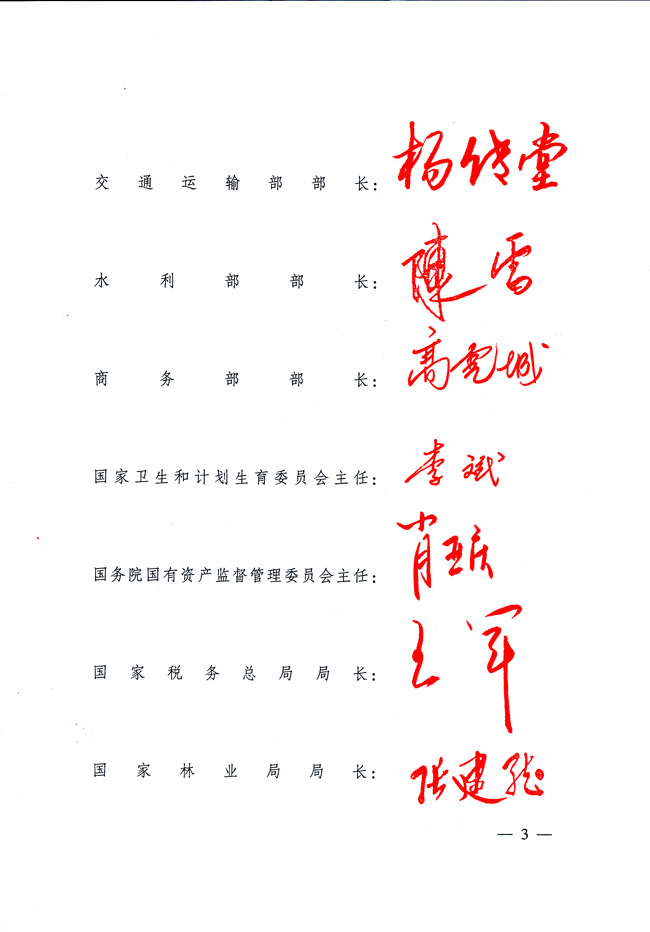 交通运输部部长：杨传堂
水利部部长：陳雷
商务部部长：高虎城
国家卫生和计划生育委员会主任：李斌
国务院国有资产监督管理委员会主任：肖亚庆
国家税务总局局长：王军
国家林业局局长：张建龙
— 3 —